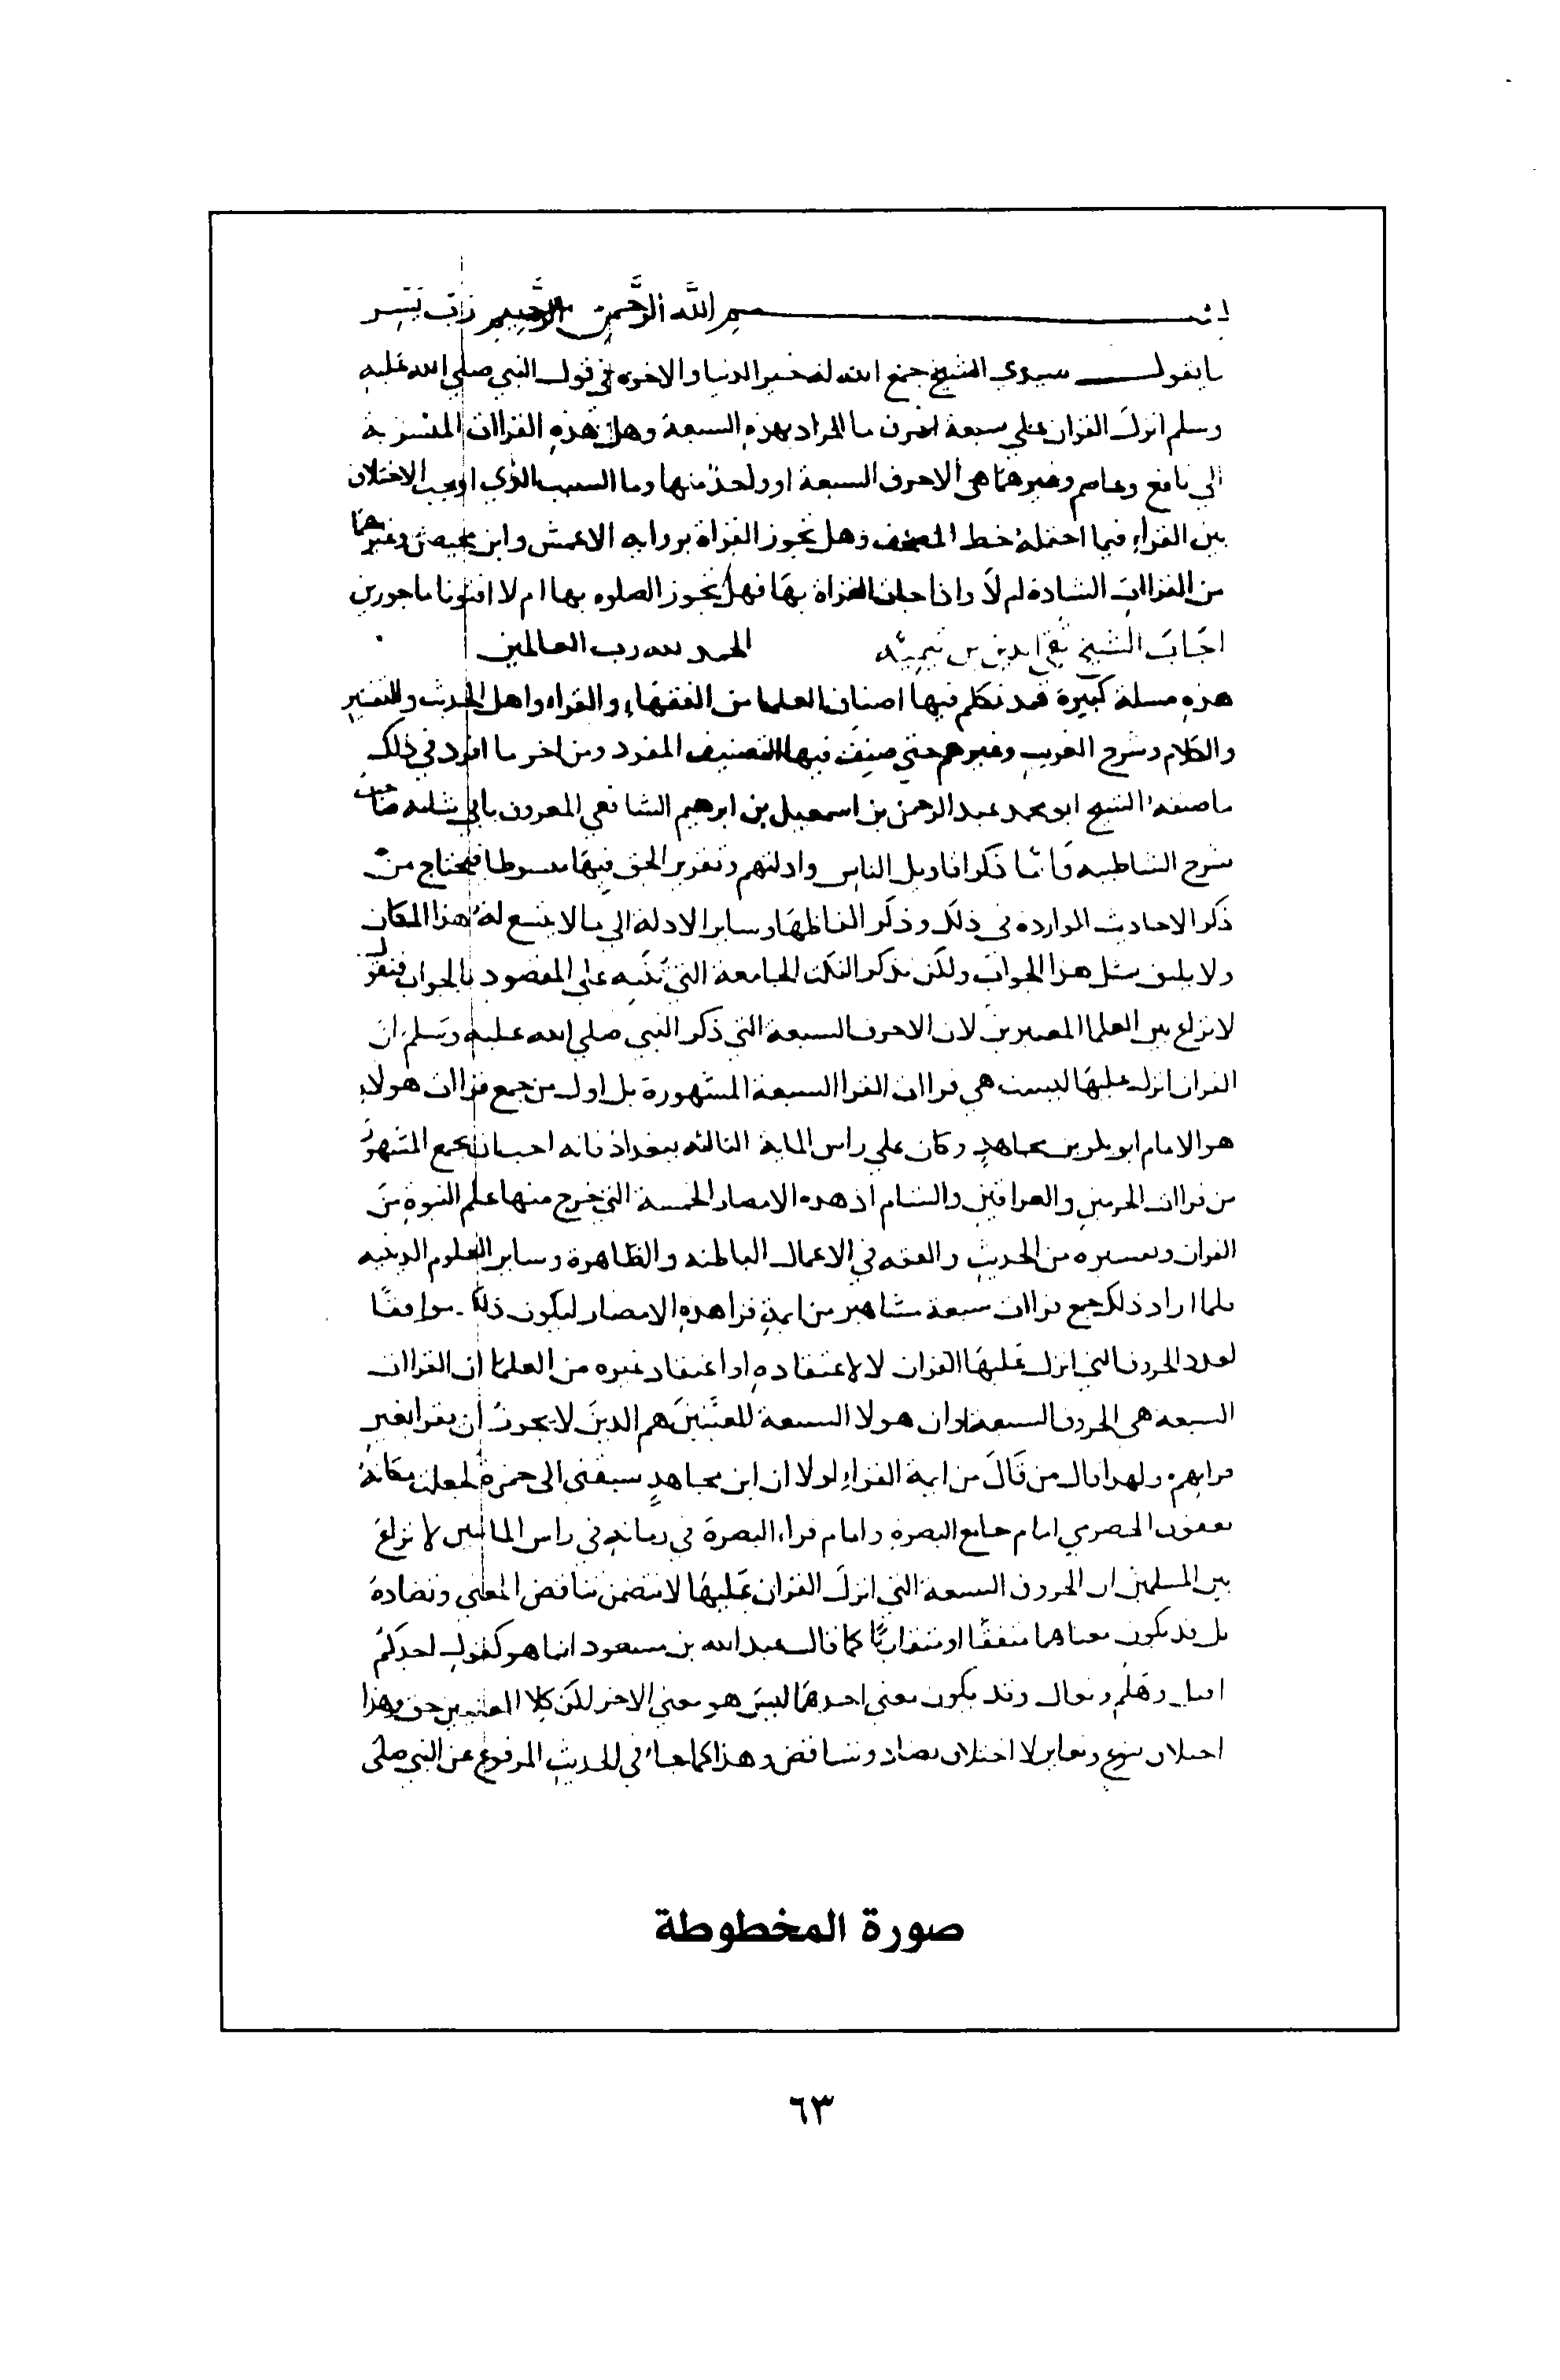 بسم الله الرحمن الرحيم رب يسر
ما يقول سيدي الشيخ جمع الله له خير الدنيا والاخره في قول النبي صلي الله عليه
وسلم انزل القران علي سبعة احرف ما المراد بهذه السبعة وهل هذه القراات المنسوبة
الي نافع وعاصم وغيرهما هي الاحرف السبعة او واحد منها وما السبب الذي اوجب الاختلاف
بين القراء فيما احتمله خط المصحف وهل تجوز القراة برواية الاعمش وابن محيصن وغيرهما
من القراات الشاذة ام لا واذا جازت القراة بها فهل تجوز الصلوه بها ام لا افتونا ماجورين
اجاب الشيخ تقي الدين بن تيمية الحمد لله رب العالمين
هذه مسلة كبيرة قد تكلم فيها اصناف العلما من الفقهاء والقراء واهل الحديث والتفسير
والكلام وشرح الغريب وغيرهم حتي صنف فيها التصنيف المفرد ومن اخر ما افرد في ذلك
ما صنفه الشيخ ابو محمد عبد الرحمن بن اسمعيل بن ابرهيم الشافعي المعروف بابي شامه صاحب
شرح الشاطبيه فاما ذكر اقاويل الناس وادلتهم وتقرير الحق فيها مبسوطا فيحتاج من
ذكر الاحاديث الوارده في ذلك وذكر الفاظها وساير الادلة الي ما لا يتسع له هذا المكان
ولا يليق بمثل هذا الجواب ولكن نذكر النكت الجامعة التي تنبه علي المقصود بالجواب فنقول
لا نزاع بين العلما المعتبرين لان الاحرف السبعة التي ذكر النبي صلي الله عليه وسلم ان
القران انزل عليها ليست هي قراات القرا السبعة المشهورة بل اول من جمع قراات هولاء
هو الامام ابو بكر بن مجاهد وكان علي راس الماية الثالثه ببغداذ فانه احب ان يجمع المشهور
من قراات الحرمين والعراقين والشام اذ هذه الامصار الخمسة التي خرج منها علم النبوة من
القران وتفسيره من الحديث والفقه في الاعمال الباطنه والظاهرة وساير العلوم الدينيه
فلما اراد ذلك جمع قراات سبعة مشاهير من ايمة قرا هذه الامصار ليكون ذلك موافقا
لعدد الحروف التي انزل عليها القران لا لاعتقاده او اعتقاد غيره من العلما ان القراات
السبعه هي الحروف السبعة او ان هولا السبعة المعينين هم الذين لا يجوز ان يقرا بغير
قراتهم ولهذا قال من قال من ايمة القراء لولا ان ابن مجاهد سبقني الي حمزة لجعلت مكانه
يعقوب الحضرمي امام جامع البصرة وامام قراء البصرة في زمانه في راس المائتين لا نزاع
بين المسلمين ان الحروف السبعة التي انزل القران عليها لا تتضمن تناقض المعني وتضاده
بل قد يكون معناها متفقا او متقاربا كما قال عبد الله بن مسعود انما هو كقول احدكم
اقبل وهلم وتعال وقد يكون معني احدهما ليس هو معني الاخر لكن كلا المعنيين حق وهذا
اختلاف تنوع وتغاير لا اختلاف تضاد وتناقض وهذا كما جاء في الحديث المرفوع عن النبي صلى
صورة المخطوطة
٦٣